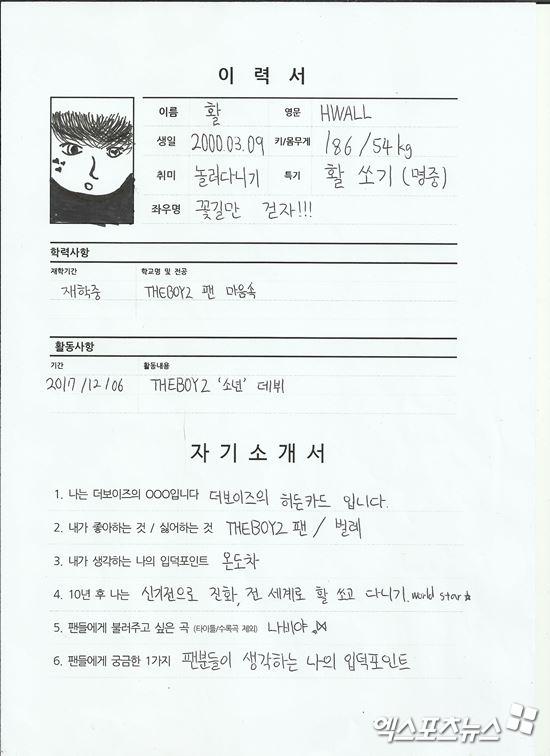 이 력 서
이름 활 영문 HWALL
생일 2000.03.09 키/몸무게 186/54kg
취미 놀러다니기 특기 활 쏘기 (명중)
좌우명 꽃길만 걷자!!!
학력사항
재학기간 학교명 및 전공
재학중 THEBOYZ 팬 마음속
활동사항
기간 활동내용
2017/12/06 THEBOYZ '소년' 데뷔
자 기 소 개 서
1. 나는 더보이즈의 OOO입니다 더보이즈의 히든카드 입니다.
2. 내가 좋아하는 것 / 싫어하는 것 THEBOYZ 팬 / 벌레
3. 내가 생각하는 나의 입덕포인트 온도차
4. 10년 후 나는 신기전으로 진화, 전 세계로 활 쏘고 다니기. world star☆
5. 팬들에게 불러주고 싶은 곡 (타이틀/수록곡 제외) 나비야.
6. 팬들에게 궁금한 1가지 팬분들이 생각하는 나의 입덕포인트
엑스포츠뉴스